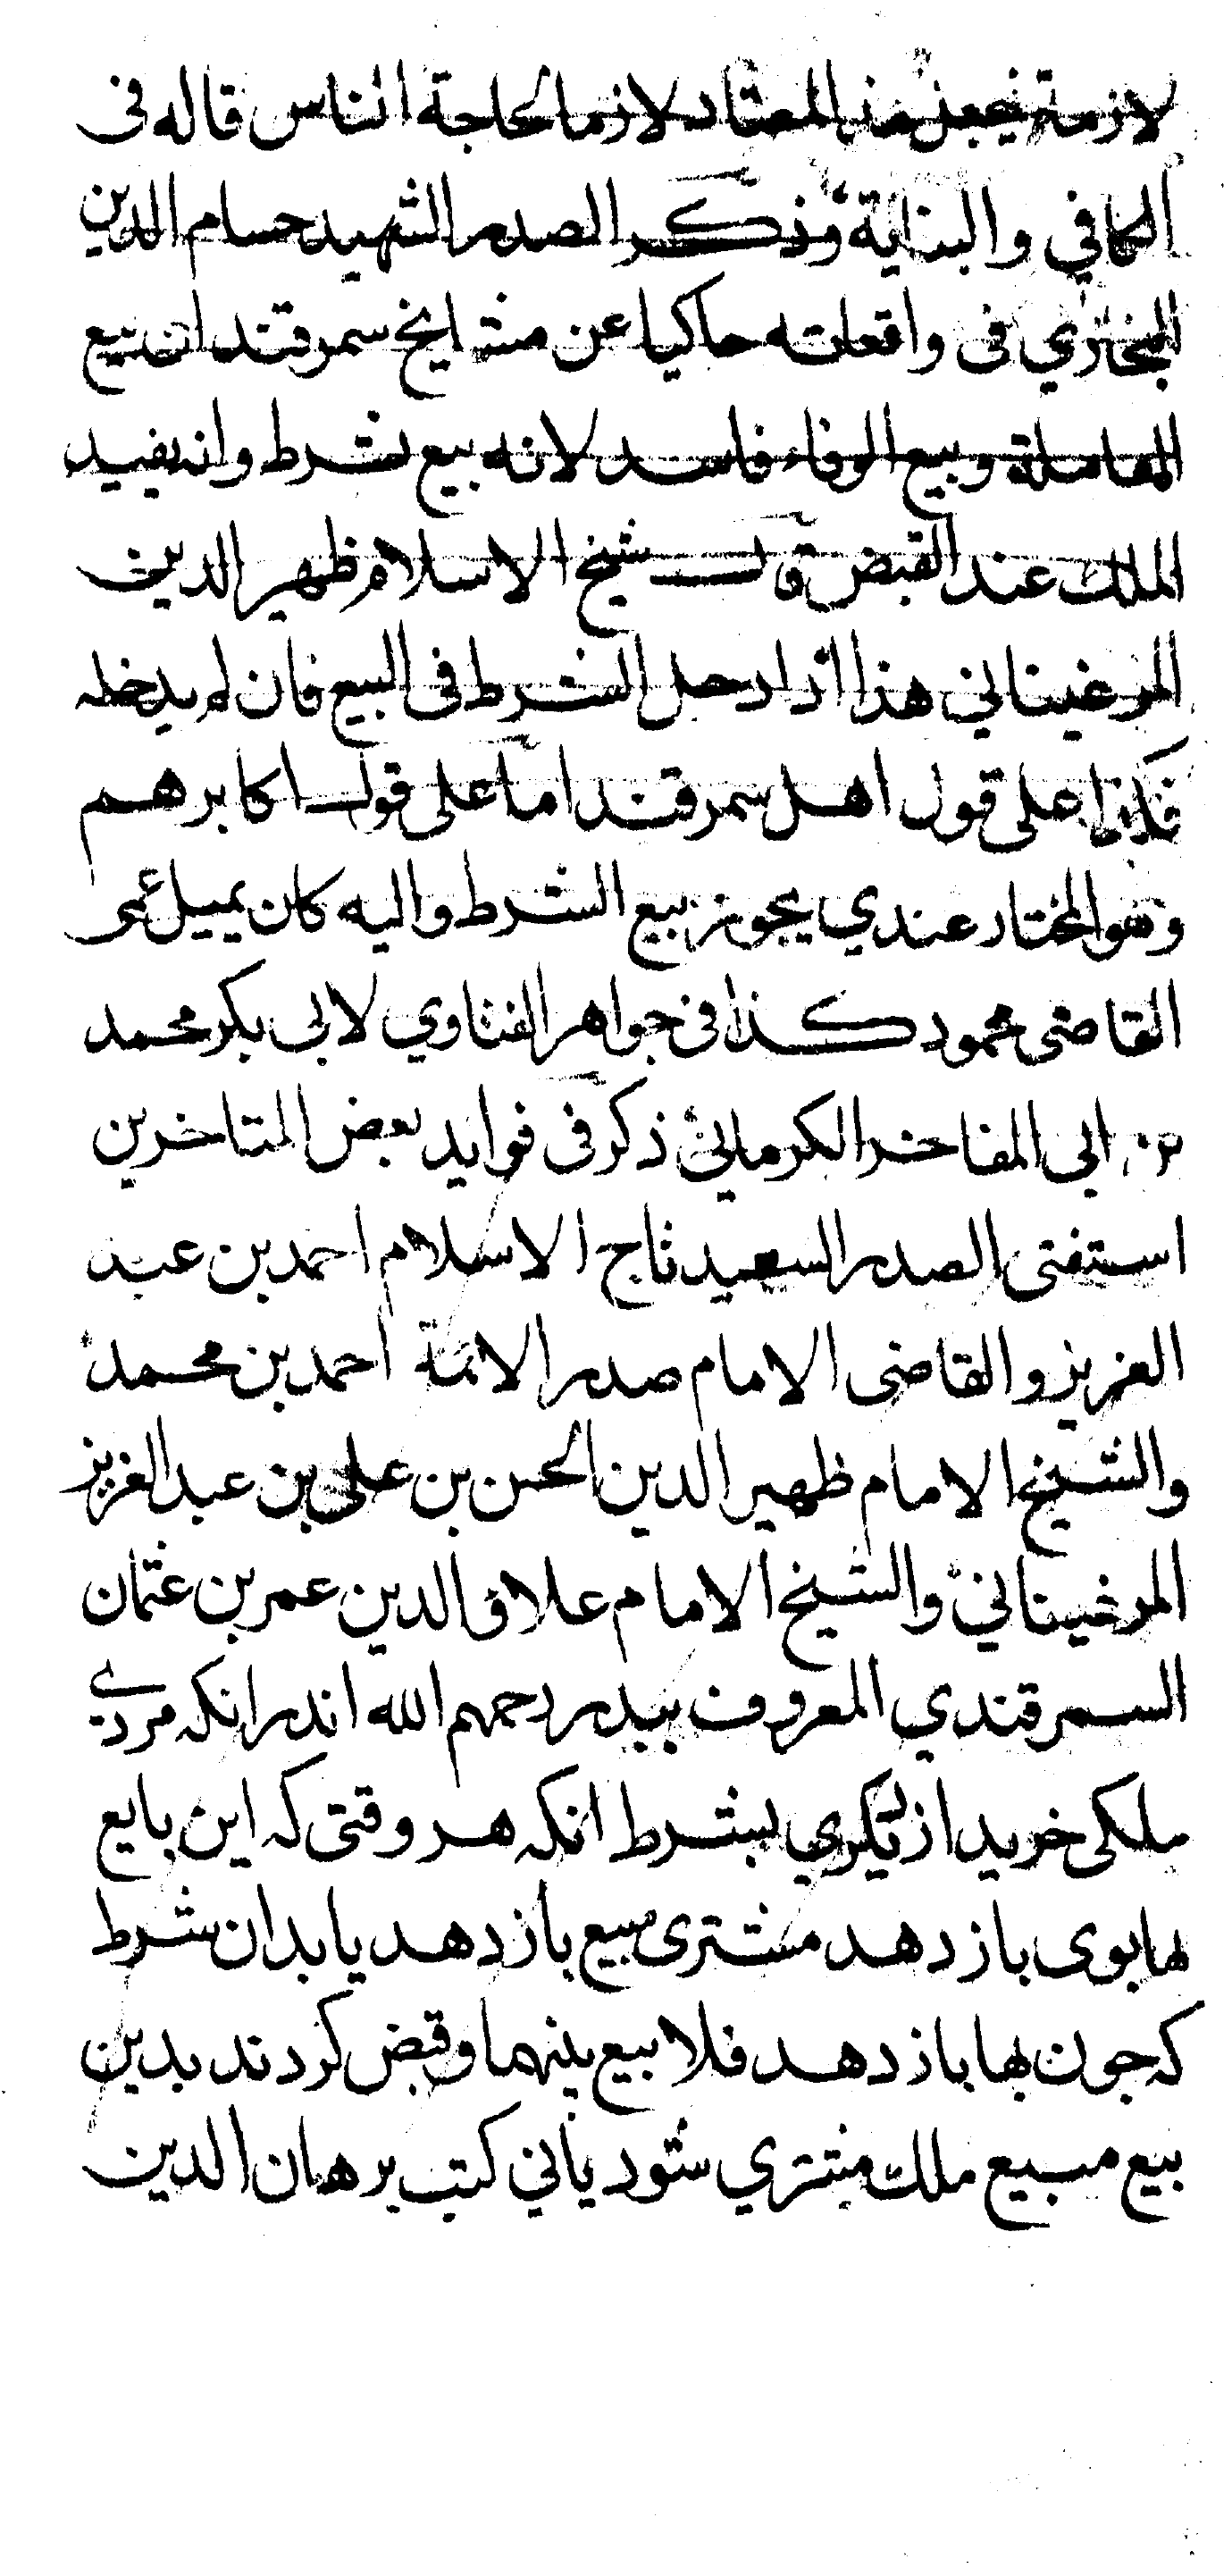 لازمة فيجعل هذا المعتاد لازما لحاجة الناس قاله فى
الكافي والبناية وذكر الصدر الشهيد حسام الدين
البخاري فى واقعاته حاكيا عن مشايخ سمرقند ان بيع
المعاملة وبيع الوفاء فاسد لانه بيع بشرط وانه يفيد
الملك عند القبض قال شيخ الاسلام ظهير الدين
المرغيناني هذا اذا دخل الشرط فى البيع فان لم يدخله
فكذا على قول اهل سمرقند اما على قول اكابرهم
وهو المختار عندي يجوز بيع الشرط واليه كان يميل عمى
القاضى محمود كذا فى جواهر الفتاوي لابى بكر محمد
بن ابى المفاخر الكرماني ذكر فى فوايد بعض المتاخرين
استفتى الصدر السعيد تاج الاسلام احمد بن عبد
العزيز والقاضى الامام صدر الائمة احمد بن محمد
والشيخ الامام ظهير الدين الحسن بن على بن عبد العزيز
المرغيناني والشيخ الامام علاؤ الدين عمر بن عثمان
السمرقندي المعروف ببدر رحمهم الله اندر انكه مردي
ملكى خريد از يكري بشرط انكه هر وقتى كه اين بايع
بها بوى باز دهد مشترى مبيع باز دهد يا بدان شرط
كه جون بها باز دهد فلا بيع بينهما وقبض كردند بدين
بيع مبيع ملك مشتري شود ياني كتب برهان الدين